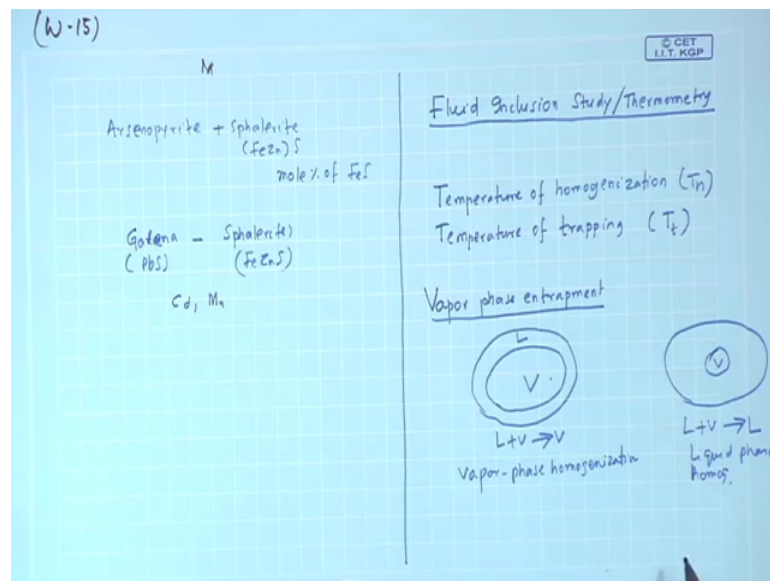 (W-15)
© CET
I.I.T. KGP
M
Arsenopyrite + Sphalerite
(FeZn)S
mole % of FeS
Galena - Sphalerite
(PbS) (FeZnS)
Cd, Mn
Fluid Inclusion Study/Thermometry
Temperature of homogenization (Th)
Temperature of trapping (Tt)
Vapor phase entrapment
L
V
V
L+V→V
Vapor-phase homogenization
L+V→L
Liquid phas
homog.